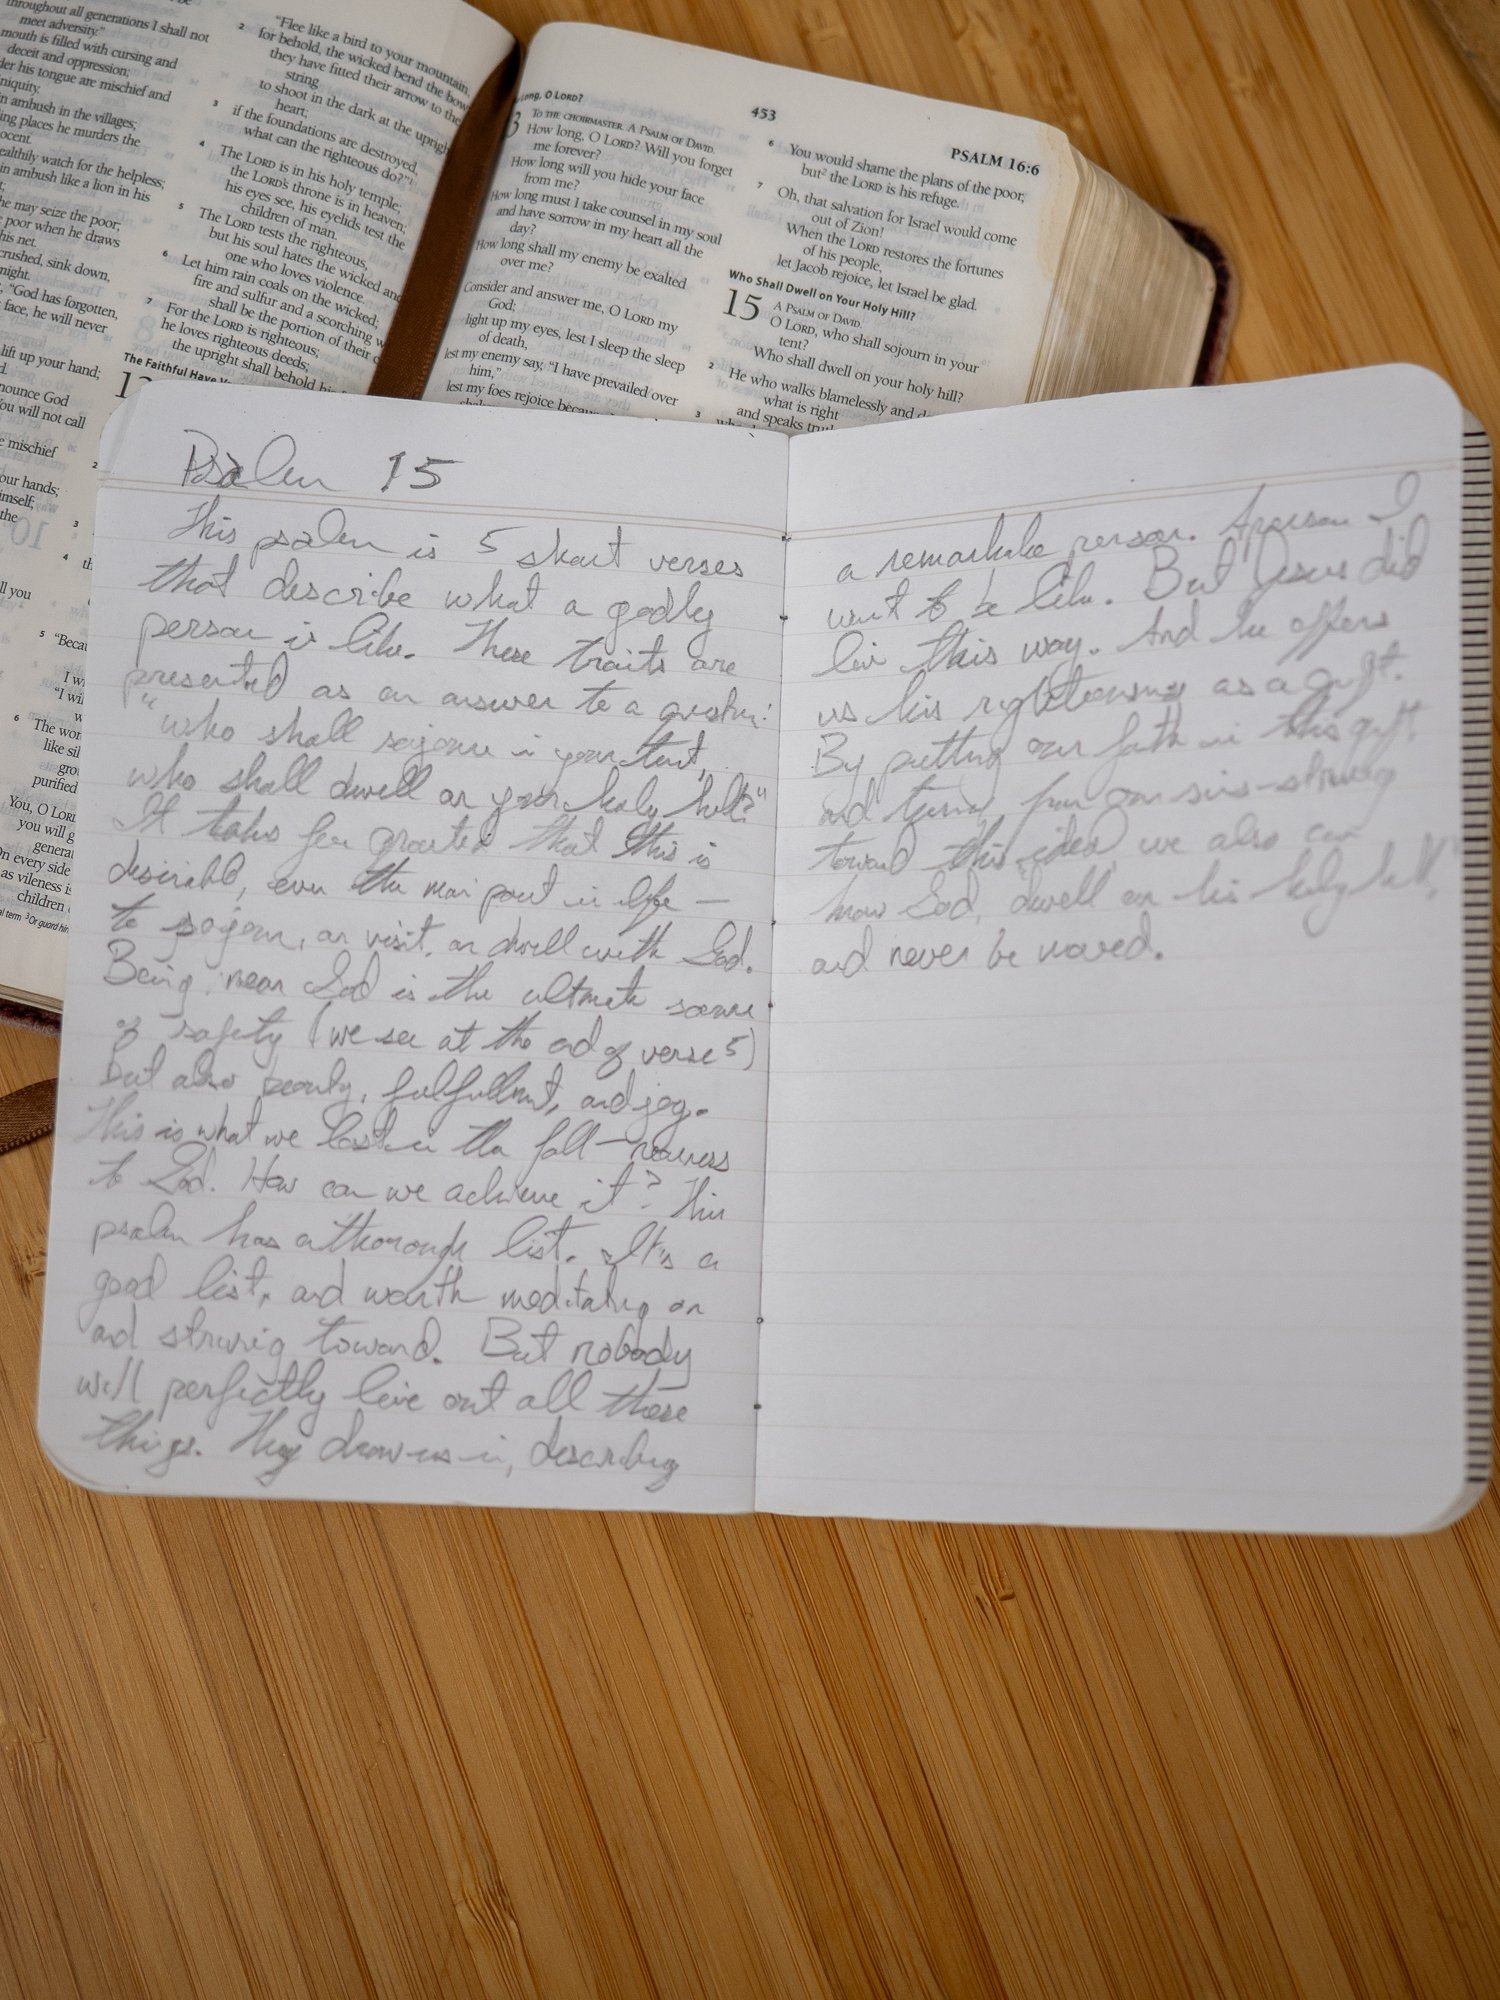 throughout all generations I shall not
meet adversity."
mouth is filled with cursing and
deceit and oppression;
der his tongue are mischief and
niquity.
in ambush in the villages;
ing places he murders the
ocent.
ealthily watch for the helpless;
in ambush like a lion in his
he may seize the poor;
poor when he draws
his net.
crushed, sink down,
might.
"God has forgotten,
face, he will never
lift up your hand;
nounce God
You will not call
e mischief
our hands;
imself;
the
ll you
2 "Flee like a bird to your mountain,
for behold, the wicked bend the bow;
they have fitted their arrow to the
string
to shoot in the dark at the upright
heart;
3 if the foundations are destroyed,
what can the righteous do?"1
4 The LORD is in his holy temple;
the LORD's throne is in heaven;
his eyes see, his eyelids test the
children of man.
5 The LORD tests the righteous,
but his soul hates the wicked and
one who loves violence.
6 Let him rain coals on the wicked;
fire and sulfur and a scorching w
shall be the portion of their c
7 For the LORD is righteous;
he loves righteous deeds;
the upright shall behold his
The Faithful Have V
12
2
3
4 th
5 "Becau
I w
"I wil
w
6 The wor
like sil
gro
purified
You, O LORD
you will g
genera
On every side
as vileness is
children
al term 3 Or guard him
Long, O LORD?
453
PSALM 16:6
3 TO THE CHOIRMASTER. A PSALM OF DAVID.
How long, O LORD? Will you forget
me forever?
How long will you hide your face
from me?
How long must I take counsel in my soul
and have sorrow in my heart all the
day?
How long shall my enemy be exalted
over me?
Consider and answer me, O LORD my
God;
light up my eyes, lest I sleep the sleep
of death,
lest my enemy say, "I have prevailed over
him,"
lest my foes rejoice because
6 You would shame the plans of the poor,
but2 the LORD is his refuge.
7 Oh, that salvation for Israel would come
out of Zion!
When the LORD restores the fortunes
of his people,
let Jacob rejoice, let Israel be glad.
Who Shall Dwell on Your Holy Hill?
15 A PSALM OF DAVID.
O LORD, who shall sojourn in your
tent?
Who shall dwell on your holy hill?
2 He who walks blamelessly and d
what is right
and speaks truth
3
Psalm 15
This psalm is 5 short verses
that describe what a godly
person is like. These traits are
presented as an answer to a question:
"who shall sojourn in your tent,
who shall dwell on your holy hill?"
It takes for granted that this is
desirable, even the main point in life —
to sojourn, or visit, or dwell with God.
Being near God is the ultimate source
of safety (we see at the end of verse 5)
but also beauty, fulfillment, and joy.
This is what we lost in the fall — nearness
to God. How can we achieve it? This
psalm has a thorough list. It's a
good list, and worth meditating on
and striving toward. But nobody
will perfectly live out all these
things. They draw us in, describing
a remarkable person. A person I
want to be like. But Jesus did
live this way. And he offers
us his righteousness as a gift.
By putting our faith in this gift
and turning from our sins - striving
toward this ideal, we also can
know God, dwell on his holy hill,
and never be moved.